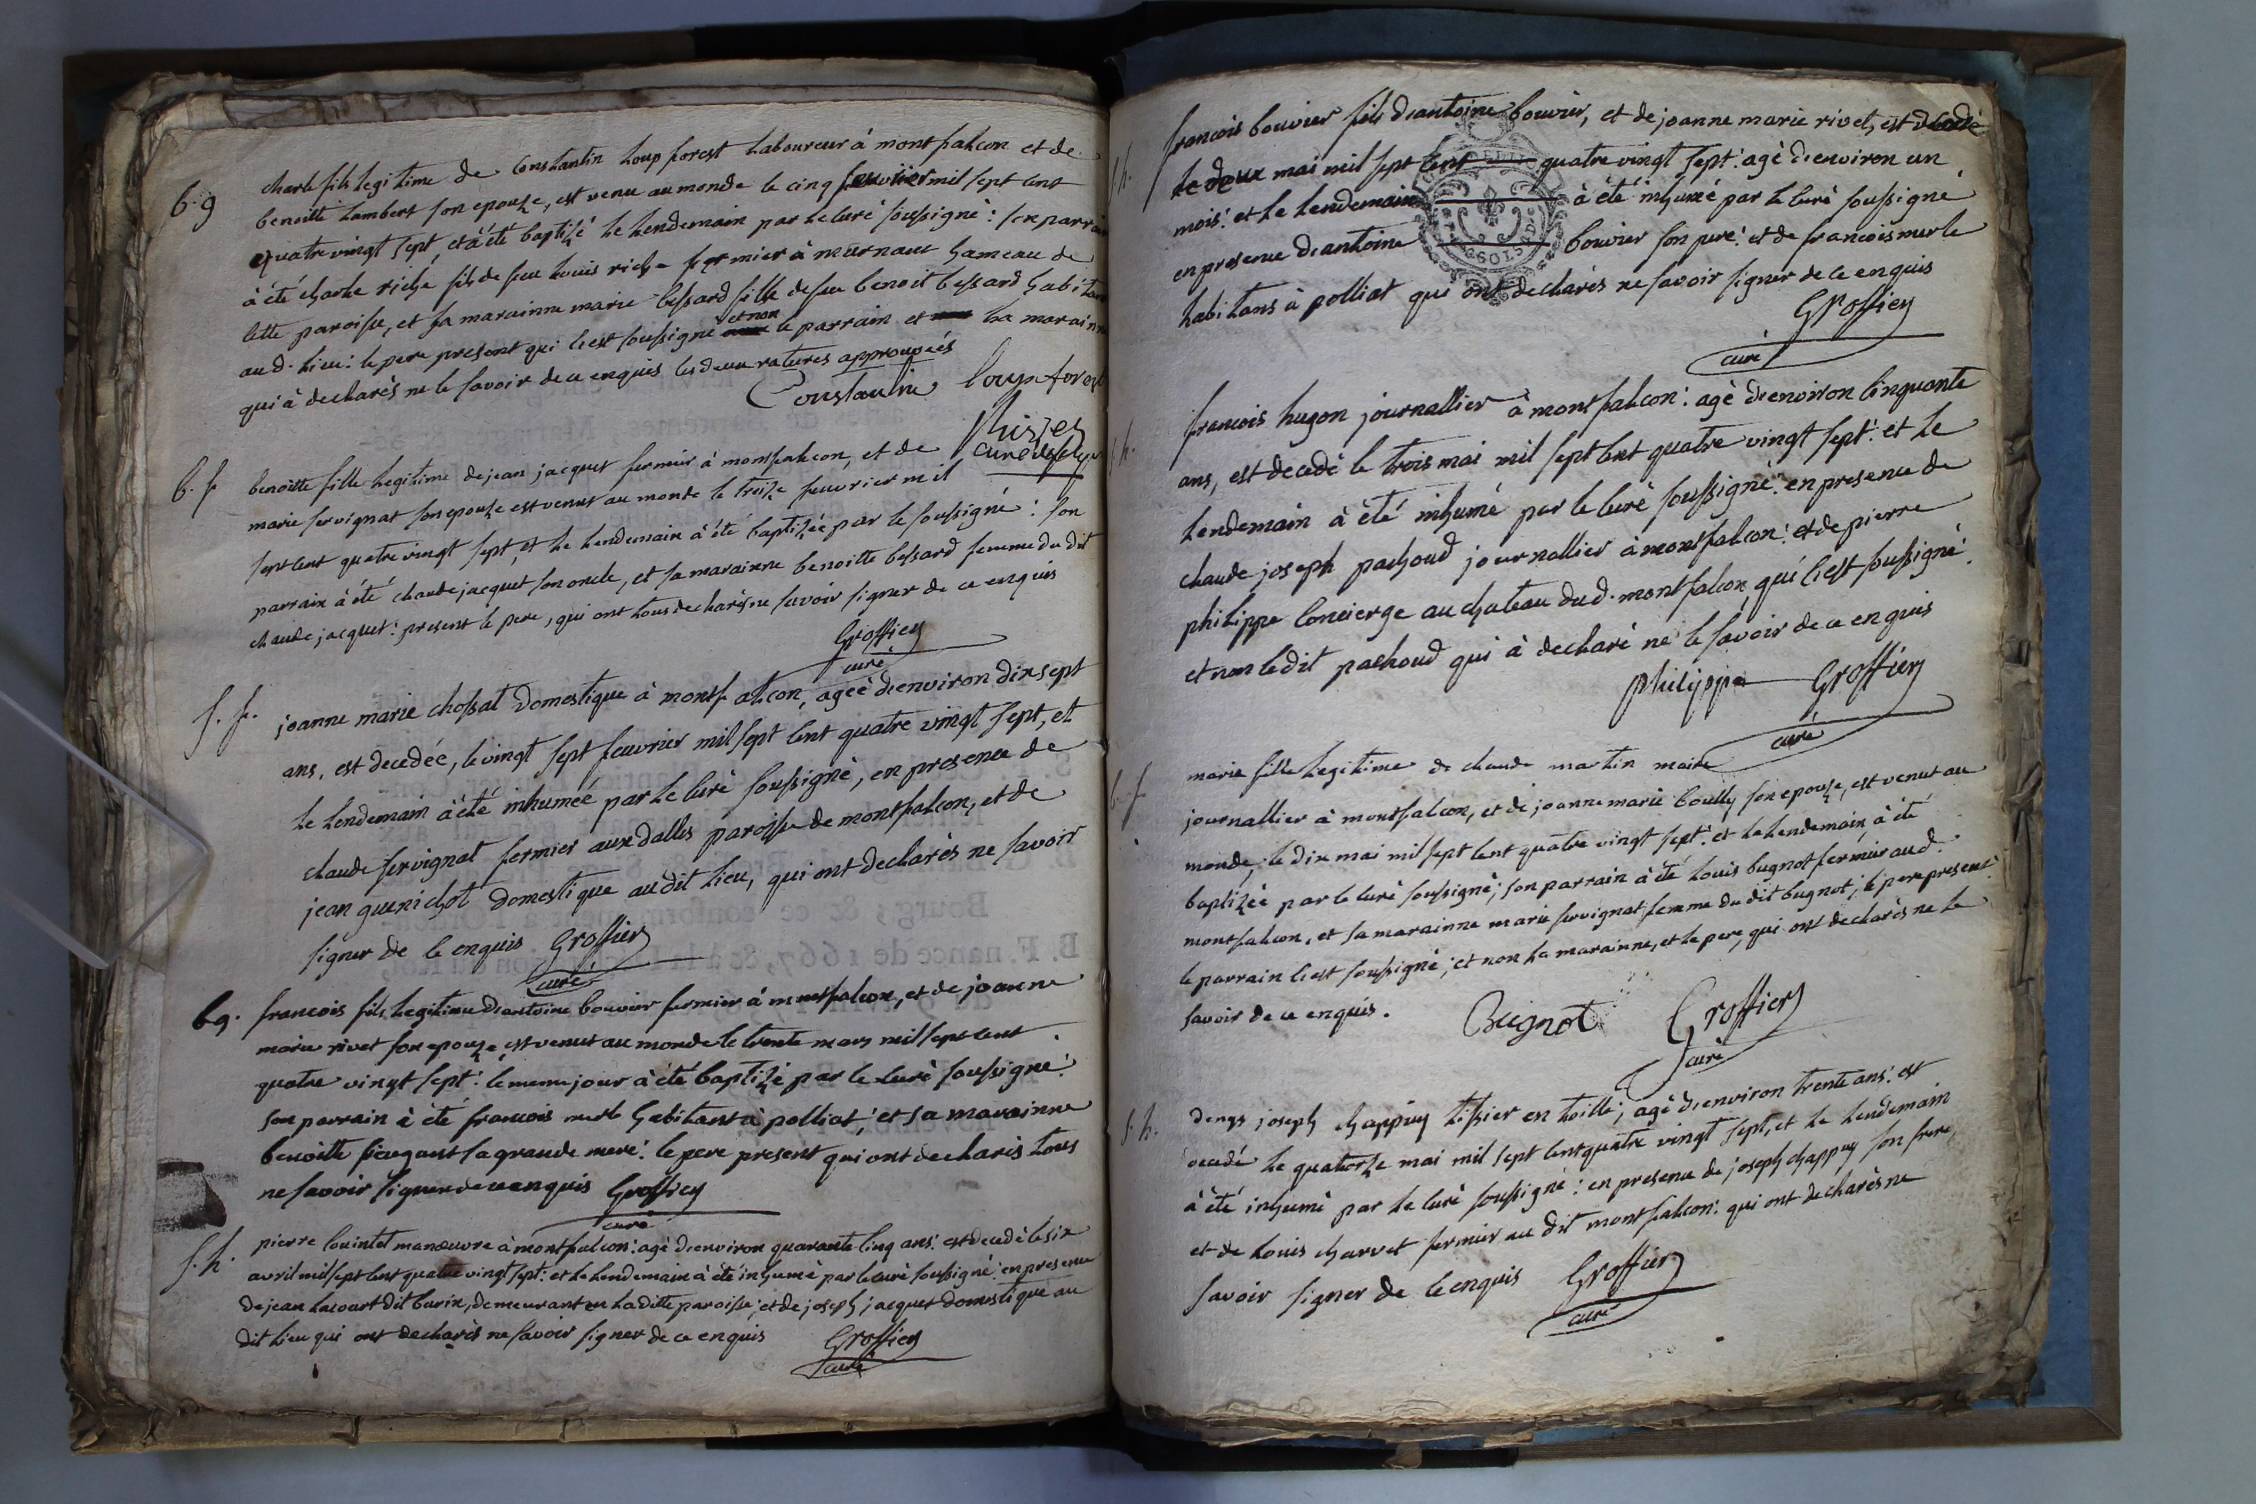 b. g
charle fils legitime de Constantin Loup forest Laboureur à montfalcon et de
benoitte Lambert son epouze, est venu au monde le cinq feuvrier mil sept cent
quatre vingt sept, et à été baptizé le lendemain par le curé soussigné : son parrain
à été charle riche fils de feu Louis riche fermier à murnaut hameau de
cette paroisse, et sa marainne marie bessard fille de feu benoit bessard habitant
au d. lieu : le pere present qui c'est soussigné et non le parrain et la marainne
qui à declarés ne le savoir de ce enquis les deux ratures approuvées
Constantin Loup forest
curé
b. f
benoitte fille legitime de jean jacquet fermier à montfalcon, et de
marie servignat son epouze est venut au monde le treize feuvrier mil
sept cent quatre vingt sept, et le lendemain à été baptizée par le soussigné : son
parrain à été claude jacquet son oncle, et sa marainne benoitte bessard femme du dit
claude jacquet : present le pere, qui ont tous declarés ne savoir signer de ce enquis
Groffier
curé
s. f.
joanne marie chossat domestique à montfalcon, ageé d'environ dix sept
ans, est decedée, le vingt sept feuvrier mil sept cent quatre vingt sept, et
le lendemain à été inhumeé par le curé soussigné, en presence de
claude servignat fermier aux dalles paroisse de montfalcon, et de
jean guenichot domestique au dit lieu, qui ont declarés ne savoir
signer de ce enquis Groffier
curé
b g.
francois fils legitime d'antoine bouvier fermier à montfalcon, et de joanne
marie rivet son epouze est venut au monde le trente mars mil sept cent
quatre vingt sept : le meme jour à été baptizé par le curé soussigné :
son parrain à été francois merle habitant à polliat ; et sa marainne
benoitte sa grande mere : le pere present qui ont declarés tous
ne savoir signer de ce enquis Groffier
curé
s. h.
pierre Couintet manœuvre à montfalcon : agé d'environ quarante cinq ans : est decedé le six
avril mil sept cent quatre vingt sept : et le lendemain à été inhumé par le curé soussigné : en presence
de jean Lacourt dit burin, demeurant en la ditte paroisse ; et de joseph jacquet domestique au
dit lieu qui ont declarés ne savoir signer de ce enquis Groffier
curé
s. h.
francois bouvier fils d'antoine bouvier, et de joanne marie rivet, est decedé
le deux mai mil sept cent quatre vingt sept : agé d'environ un
mois : et le lendemain à été inhumé par le curé soussigné
en presence d'antoine bouvier son pere : et de francois merle
habitans à polliat qui ont declarés ne savoir signer de ce enquis
Groffier
curé
s. h.
francois hugon journallier à montfalcon : agé d'environ cinquante
ans, est decedé le trois mai mil sept cent quatre vingt sept : et le
lendemain à été inhumé par le curé soussigné : en presence de
claude joseph pachoud journallier à montfalcon : et de pierre
philippe concierge au chateau du d. montfalcon, qui c'est soussigné :
et non le dit pachoud qui à declaré ne le savoir de ce enquis
philippe Groffier
curé
b. f
marie fille legitime de claude martin maire
journallier à montfalcon, et de joanne marie bouilly son epouze, est venut au
monde, le dix mai mil sept cent quatre vingt sept : et le lendemain, à été
baptizée par le curé soussigné ; son parrain à été Louis bugnot fermier au d.
montfalcon, et sa marainne marie servignat femme du dit bugnot ; le pere present :
le parrain c'est soussigné ; et non la marainne, et le pere, qui ont declarés ne le
savoir de ce enquis. Bugnot Groffier
curé
s. h.
denys joseph chappuy tissier en toille ; agé d'environ trente ans : est
decedé le quatorze mai mil sept cent quatre vingt sept, et le lendemain
à été inhumé par le curé soussigné : en presence de joseph chappuy son frere,
et de Louis charvet fermier au dit montfalcon : qui ont declarés ne
savoir signer de ce enquis Groffier
curé